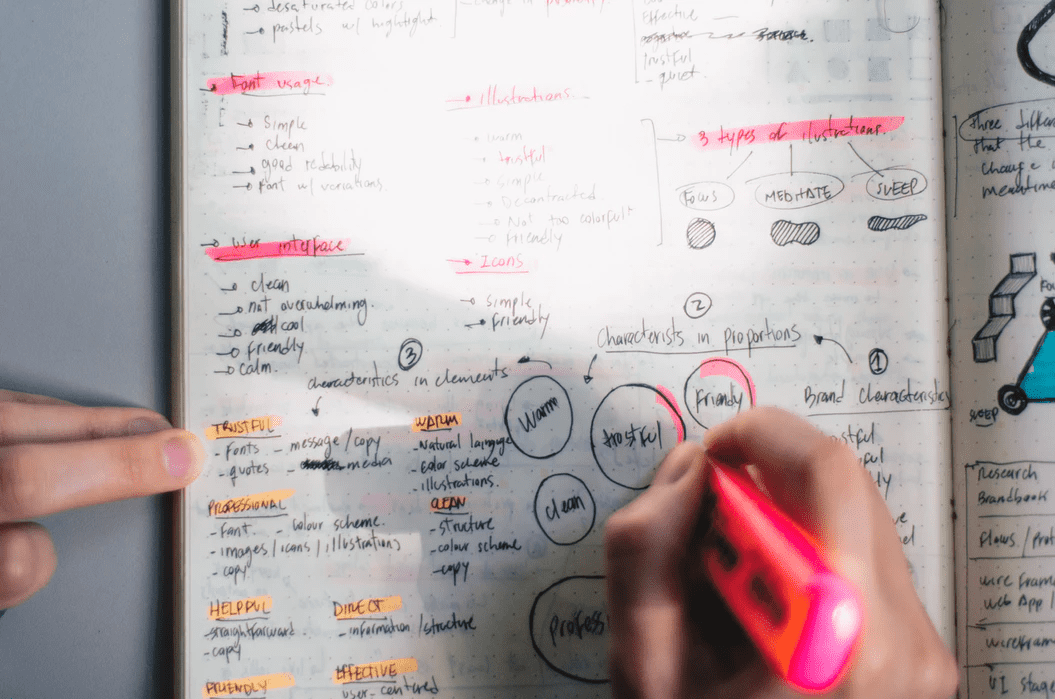 desaturated colors
pastels w/ hightligt
change in
Effective
Trustful
- quiet
Font usage
Simple
Clean
good redability
Font w/ variations
Illustrations
warm
trustful
Simple
Decontracted
Not too colorful
Friendly
3 types of ilustrations.
Focus
MEDITATE
SLEEP
User interface
clean
not overwhelming.
cool
Friendly
calm.
Icons
Simple
Friendly
2
Characterists in proportions
1
Brand Characteristics
3
characteristics in elements
Warm
trustful
Friendly
clean
professi
TRUSTFUL
- Fonts
- quotes
- message/copy
- media
WARM
- Natural language
- color scheme
- illustrations.
PROFESSIONAL
- Font
- colour scheme.
- images/icons/illustrations
- copy
CLEAN
- structure
- colour scheme
- copy
HELPFUL
- straightforward
- copy
DIRECT
- information/structure
FRIENDLY
EFFECTIVE
user-centured
three differen
that the
change
meantime
SLEEP
Research
Brandbook
Flows/Prot
wire frame
Web App/
wirefram
UI stage